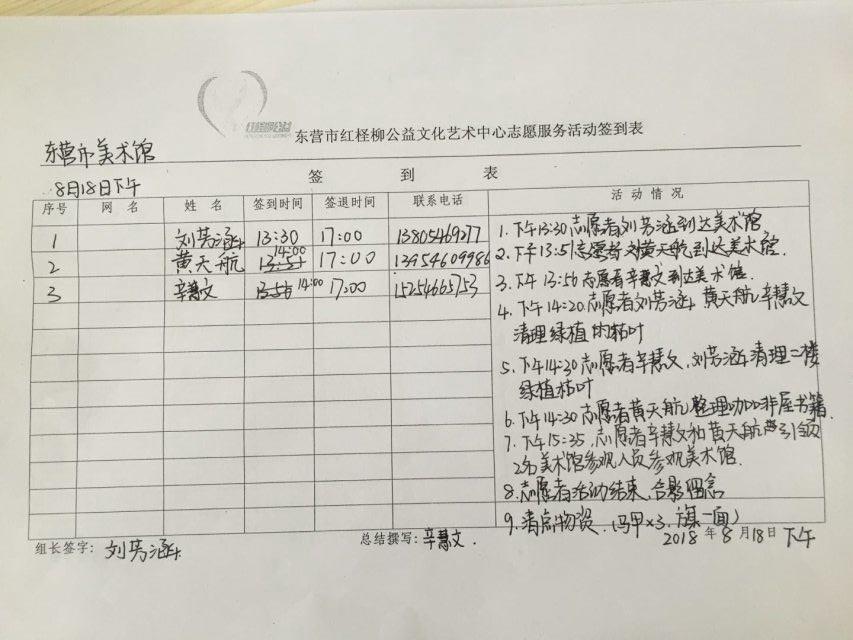 红柽柳公益
东营市红柽柳公益文化艺术中心志愿服务活动签到表
东营市美术馆
签 到 表
8月18日下午
序号 网 名 姓 名 签到时间 签退时间 联系电话 活 动 情 况
1 刘芳涵 13:30 17:00 13805469277
2 黄天航 13:51 14:00 17:00 13954609986
3 辛慧文 13:56 14:00 17:00 15254665753
1.下午13:30志愿者刘芳涵到达美术馆
2.下午13:51志愿者黄天航到达美术馆.
3.下午13:56志愿者辛慧文到达美术馆.
4.下午14:20志愿者刘芳涵 黄天航 辛慧文
清理绿植的枯叶
5.下午14:30志愿者辛慧文,刘芳涵清理二楼
绿植枯叶
6.下午14:30志愿者黄天航整理咖啡屋书籍.
7.下午15:35,志愿者辛慧文和黄天航引领
2名美术馆参观人员参观美术馆.
8.志愿者活动结束,合影留念
9.清点物资.(马甲×3.旗一面)
组长签字: 刘芳涵 总结撰写: 辛慧文. 2018年8月18日下午